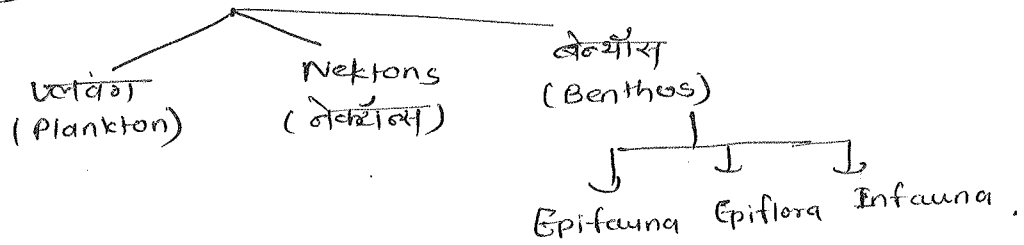 प्लवंग
(Plankton)
Nektons
(नेक्टॉन्स)
बेन्थॉस
(Benthos)
Epifauna Epiflora Infauna.